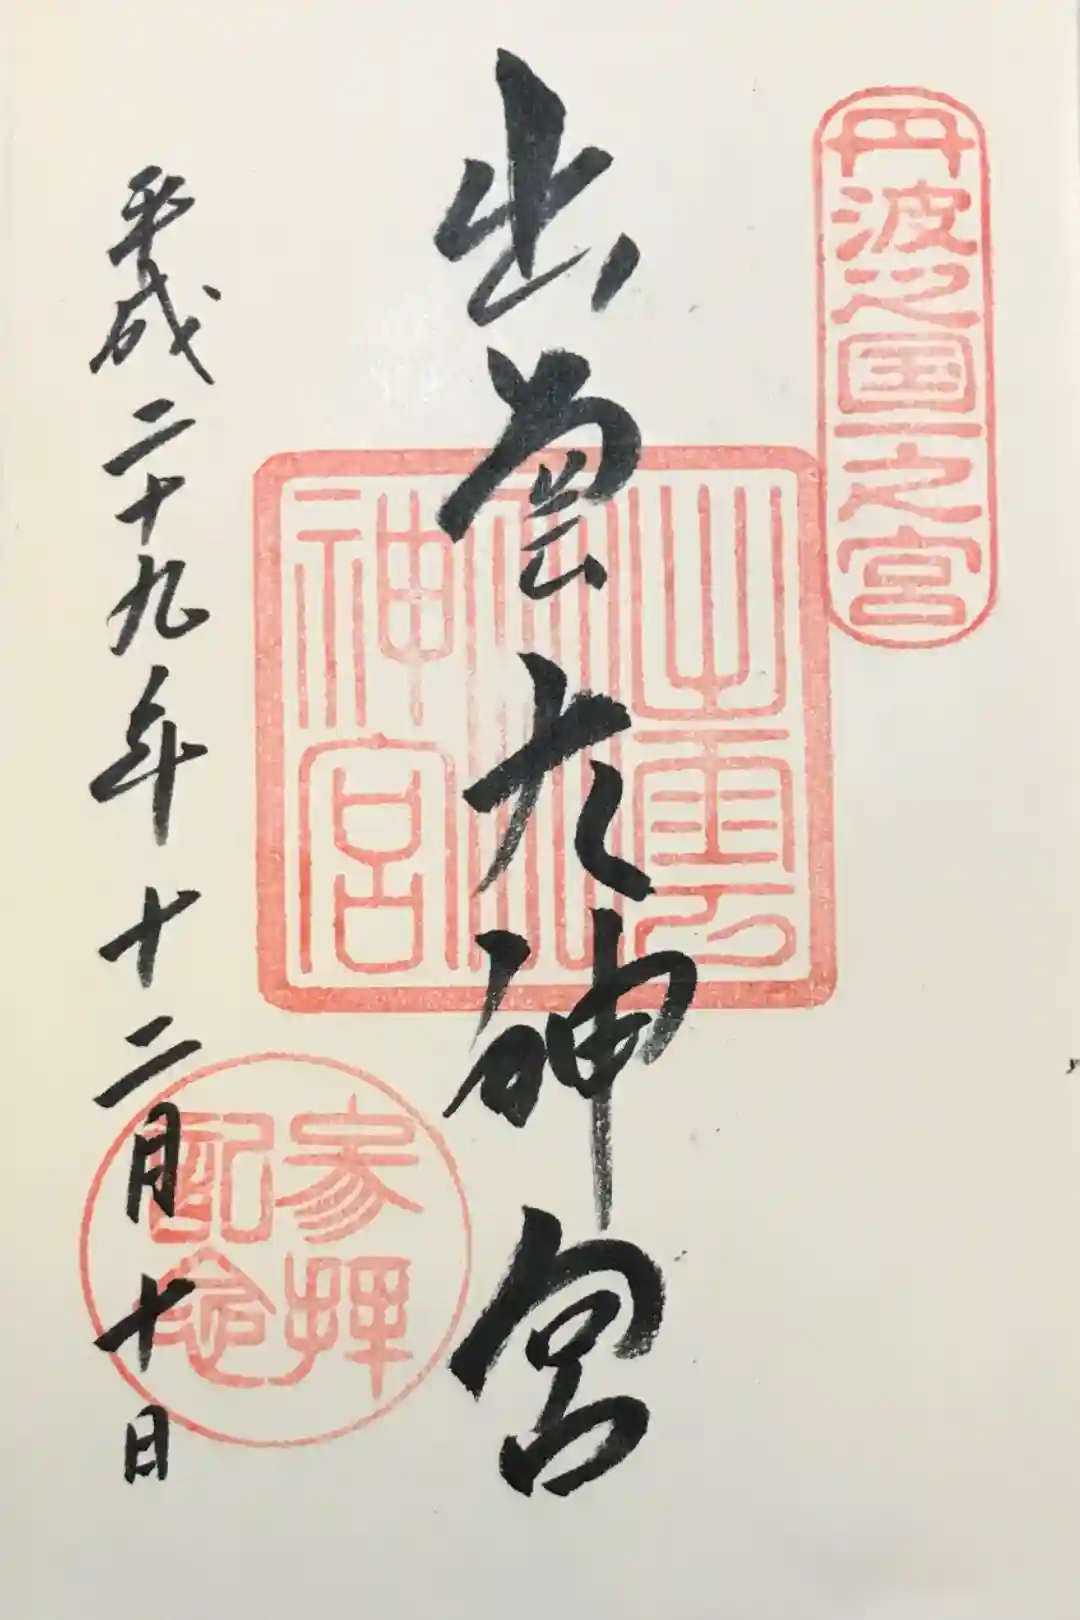 丹波之国一之宮
出雲大神宮
出雲
大
神宮
平成二十九年十二月十日
参拝
記念